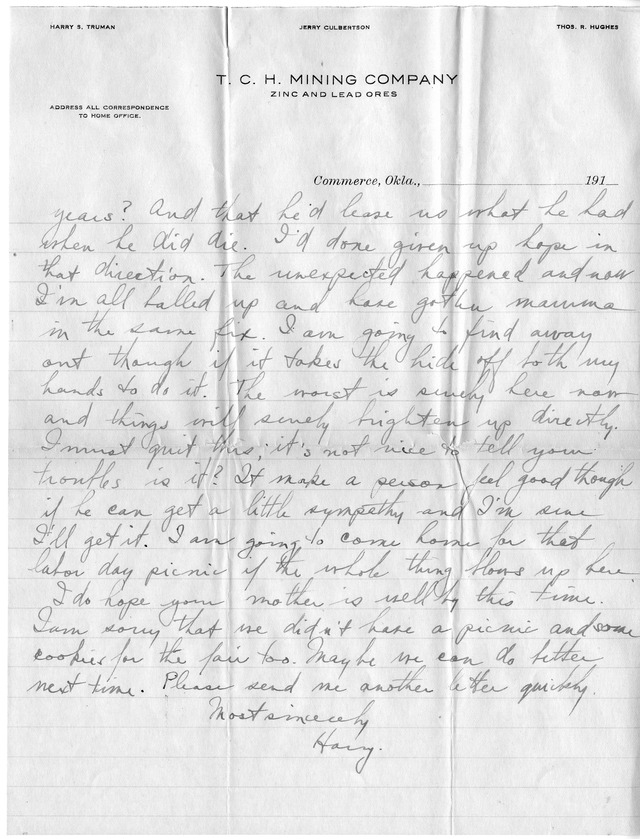 HARRY S. TRUMAN JERRY CULBERTSON THOS. R. HUGHES
T. C. H. MINING COMPANY
ZINC AND LEAD ORES
ADDRESS ALL CORRESPONDENCE
TO HOME OFFICE.
Commerce, Okla., 191
years? And that he'd leave us what he had
when he did die. I'd done given up hope in
that direction. The unexpected happened and now
I'm all balled up and have gotten mamma
in the same fix. I am going to find away
out though if it takes the hide off both my
hands to do it. The worst is surely here now
and things will surely brighten up directly.
I must quit this; it's not nice to tell your
troubles is it? It make a person feel good though
if he can get a little sympathy and I'm sure
I'll get it. I am going to come home for that
labor day picnic if the whole thing blows up here.
I do hope your mother is well by this time.
I am sorry that we didn't have a picnic and some
cookies for the fair too. Maybe we can do better
next time. Please send me another letter quickly.
Most sincerely
Harry.